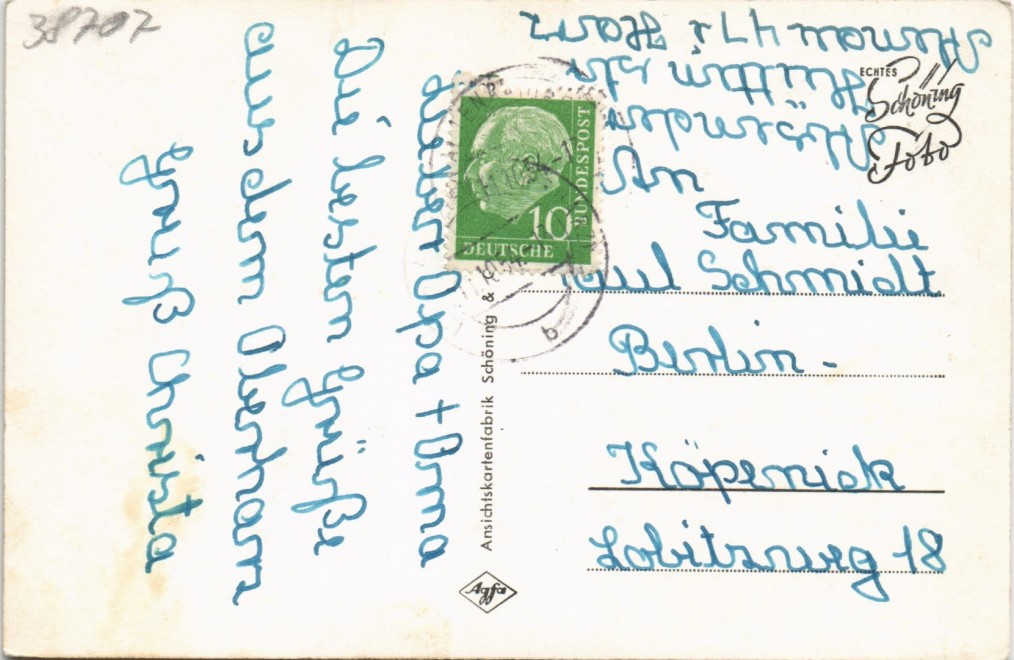 38707
Lieber Opa + Oma
Die besten Grüße
aus dem Oberharz
Gruß Christa
Absender
Hüttenstr
Altenau 47 i Harz
ECHTES
Schöning
Foto
BUNDESPOST
10
DEUTSCHE
An
Familie
Paul Schmidt
Berlin-
Köpenick
Lobitzweg 18
Ansichtskartenfabrik Schöning &
Agfa